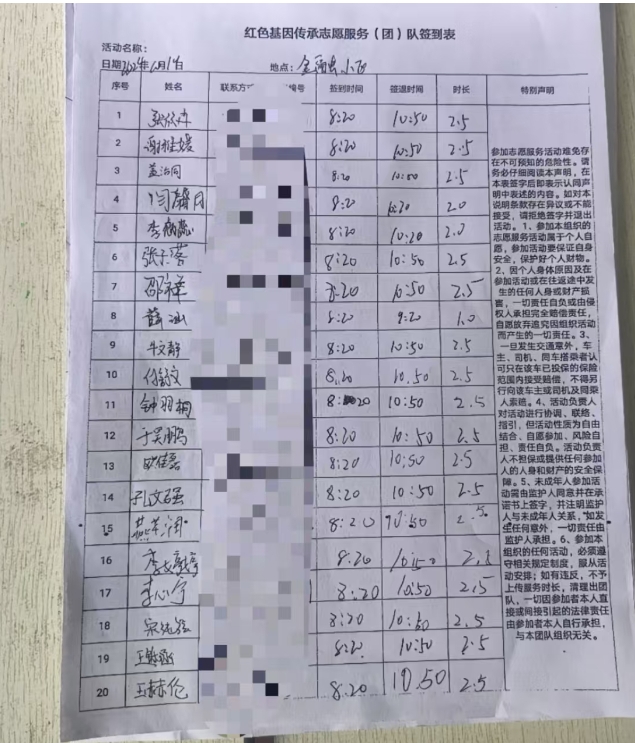 红色基因传承志愿服务（团）队签到表
活动名称：
日期 地点：
序号 姓名 联系方 号 签到时间 签退时间 时长 特别声明
1 8:20 10:50 2.5
2 8:20 10:50 2.5
3 孟治同 8:20 10:50 2.5
4 8:20 10:20 2.0
5 8:20 10:20 2.0
6 8:20 10:50 2.5
7 邵祥 8:20 10:50 2.5
8 8:20 9:20 1.0
9 牛文静 8:20 10:50 2.5
10 8.20 10.50 2.5
11 钟羽桐 8:20 10:50 2.5
12 于昊鹏 8:20 10:50 2.5
13 8:20 10:50 2.5
14 孔文强 8:20 10:50 2.5
15 8:20 10:50 2.5
16 8:20 10:50
17 李心宇 8:20 10:50 2.5
18 8:20 10:50 2.5
19 8:20 10:50 2.5
20 王赫伦 8:20 10.50 2.5
参加志愿服务活动难免存
在不可预知的危险性。请
务必仔细阅读本声明，在
本表签字后即表示认同声
明中表述的内容。如对本
说明条款存在异议或不能
接受，请拒绝签字并退出
活动。1、参加本组织的
志愿服务活动属于个人自
愿，参加活动要保证自身
安全，保护好个人财物。
2、因个人身体原因及在
参加活动或在往返途中发
生的任何人身或财产损
害，一切责任自负或由侵
权人承担完全赔偿责任，
自愿放弃追究因组织活动
而产生的一切责任。3、
一旦发生交通意外，车
主、司机、同车搭乘者认
可只在该车已投保的保险
范围内接受赔偿，不得另
行向该车主或司机及同乘
人索赔。4、活动负责人
对活动进行协调、联络、
指引，但活动性质为自由
结合、自愿参加、风险自
担、责任自负。活动负责
人不担保或提供任何参加
人的人身和财产的安全保
障。5、未成年人参加活
动需由监护人同意并在承
诺书上签字，并注明监护
人与未成年人关系，如发
生任何意外，一切责任由
监护人承担。6、参加本
组织的任何活动，必须遵
守相关规定制度，服从活
动安排；如有违反，不予
上传服务时长，清理出团
队，一切因参加者本人直
接或间接引起的法律责任
由参加者本人自行承担，
与本团队组织无关。